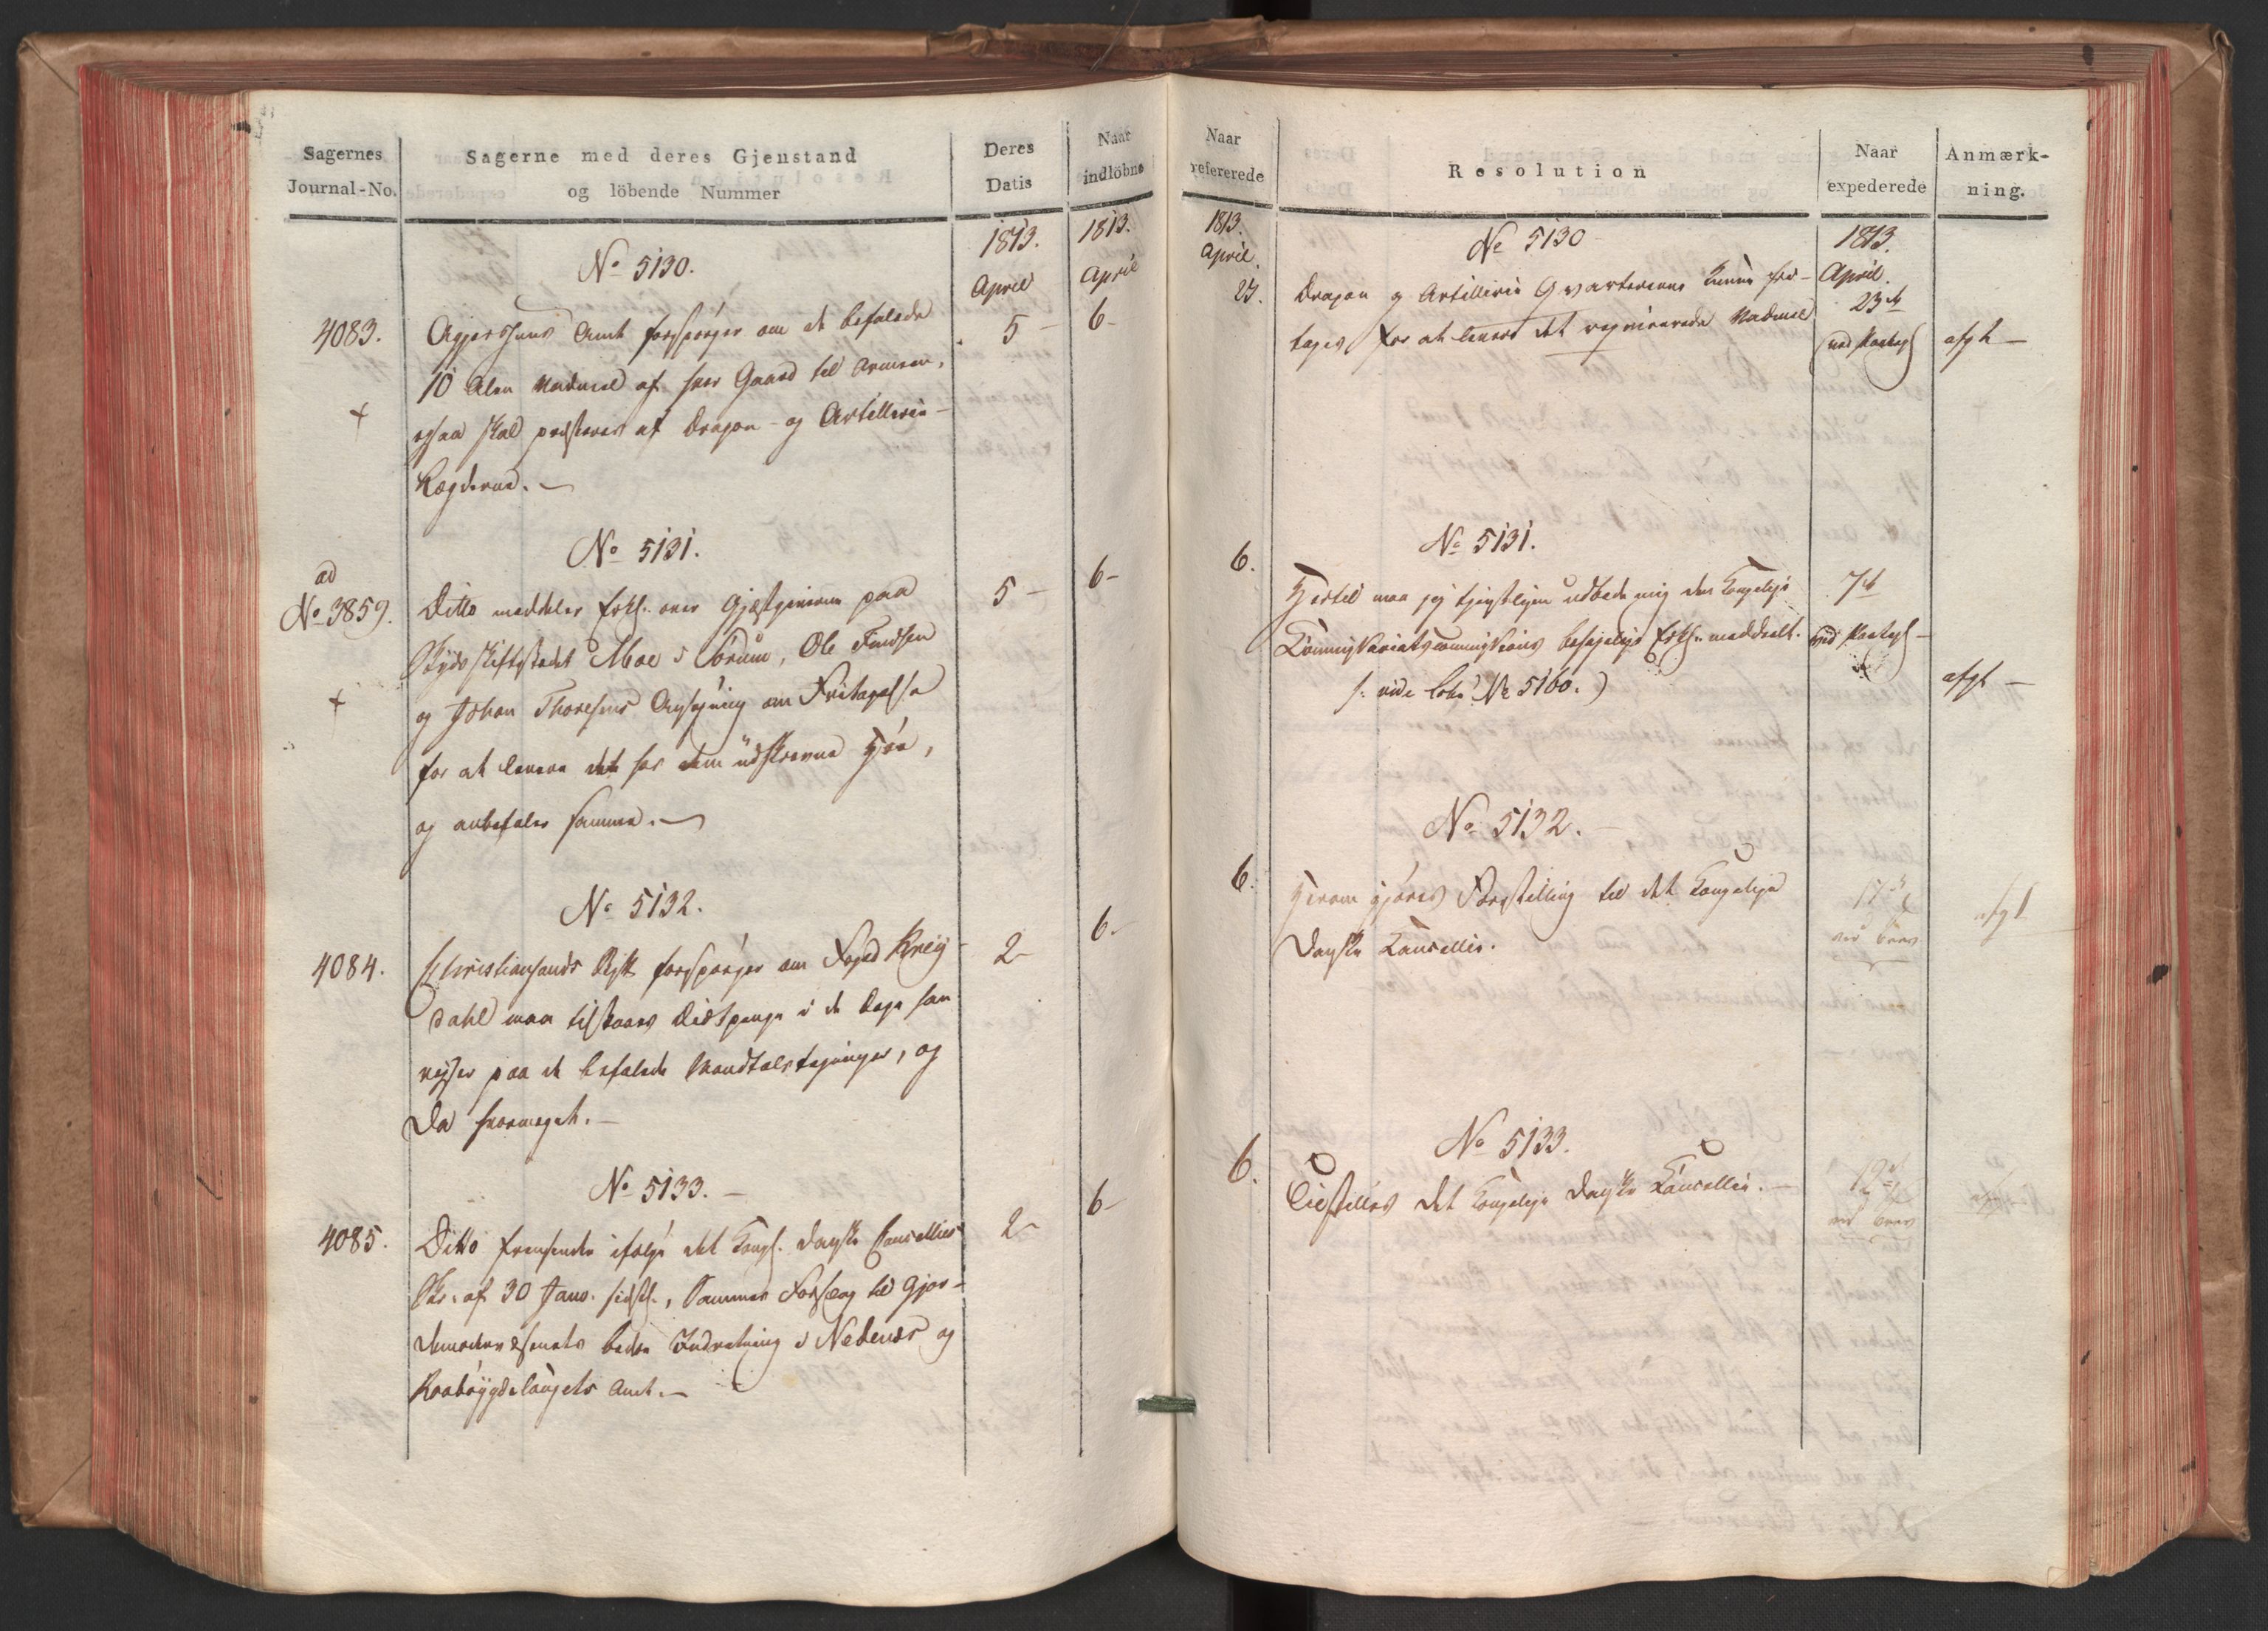 Sagernes
Journal-No.
Sagerne med deres Gjenstand
og löbende Nummer
Deres
Datis
Naar
indlöbne
1813.
April
1813.
April
No 5130.
4083.
Aggershuus Amt forspörger om de befalede
5 -
6 -
10 Alen Vadmel af hver Gaard til Armeen,
ogsaa skal præsteres af Dragon- og Artillerie-
Lægderne. -
No 5131.
ad
No 3859.
Ditto meddeler Erkl. over Gjæstgiverne paa
5 -
6 -
Skydsskiftestedet Moe i Sørum, Ole Findsen
og Johan Thoresens Ansøgning om Fritagelse
for at levere det for dem udskrevne Høe,
og anbefaler samme. -
No 5132.
4084.
Christiansands Stift forspørger om Foged Kreij-
2 -
6 -
dahl maa tilstaaes Diætpenge i de Dage han
rejser paa de befalede Mandtalstegninger, og
da hvormeget. -
No 5133. -
4085.
Ditto fremsender ifølge det Kongl. danske Cancellies
2 -
6 -
Skr. af 30 Janr. sidstl., Sammes Forslag til Gjor-
demodervæsenets bedre Indretning i Nedenæs og
Raabøygdelaugets Amt. -
Naar
refererede
Resolution
Naar
expederede
Anmærk-
ning.
1813.
April.
1813.
April.
No 5130
23.
Dragon og Artillerie Qvartererne kunne fri-
23de
tages for at levere det reqvirerede Vadmel
ved Paategn.
afgt -
No 5131.
6.
Hertil maa jeg tjenstligen udbede mig den Kongelige
7de
Commissariatscommissions behagelige Erkl. meddeelt.
ved Paategn. -
(: vide Lobe No 5160. )
afgt -
No 5132. -
6.
Herom gjøres Forestilling til det Kongelige
17de
Danske Cancellie.
ved Brev
afgt
No 5133.
6.
Tilstilles det Kongelige Danske Cancellie. -
ved Brev